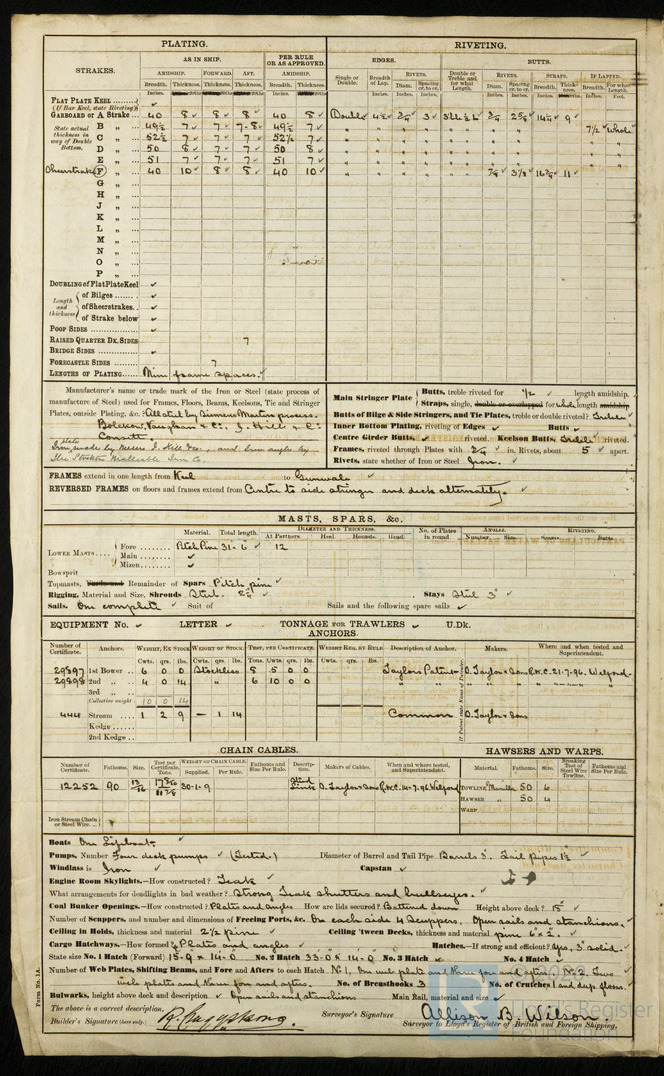 PLATING. RIVETING.
AS IN SHIP. PER RULE OR AS APPROVED. EDGES. BUTTS.
STRAKES. AMIDSHIP. FORWARD. AFT. AMIDSHIP. Single or Double. Breadth of Lap. RIVETS. Double or Treble and for what Length. RIVETS. STRAPS. IF LAPPED.
Breadth. Thickness. Thickness. Thickness. Breadth. Thickness. Diam. Spacing cr. to cr. Diam. Spacing cr. to cr. Breadth. Thickness. Breadth. For what Length.
FLAT PLATE KEEL
(If Bar Keel, state Riveting)
GARBOARD OR A Strake 40 8 8 8 40 8 Double 3/4 3 3/4 9
State actual thickness in way of Double Bottom.
B „ 49½ 7 7 7-8 49½ 7 7½ whole
C „ 52½ 7 7 7 52½ 7
D „ 50 8 7 7 50 8
E „ 51 7 7 7 51 7
Sheerstrake F „ 40 10 8 8 40 10 7/8 11
G „
H „
J „
K „
L „
M „
N „
O „
P „
DOUBLING of Flat Plate Keel
Length and thickness of Bilges
of Sheerstrakes
of Strake below
POOP SIDES
RAISED QUARTER DK. SIDES 7
BRIDGE SIDES
FORECASTLE SIDES 7
LENGTHS OF PLATING Nine frame spaces.
Manufacturer's name or trade mark of the Iron or Steel (state process of manufacture of Steel) used for Frames, Floors, Beams, Keelsons, Tie and Stringer Plates, outside Plating, &c. All steel by Siemens Martin process.
Bolckow, Vaughan & Co., J. Hill & Co.
Consett.
Iron plate made by Messrs J. Hill & Co., and Iron angles by
the Stockton Malleable Iron Co.
Main Stringer Plate Butts, treble riveted for 1/2 length amidship.
Straps, single, double or overlapped for whole length amidship
Butts of Bilge & Side Stringers, and Tie Plates, treble or double riveted? Treble
Inner Bottom Plating, riveting of Edges Butts
Centre Girder Butts, riveted. Keelson Butts, Treble riveted.
Frames, riveted through Plates with 3/4 in. Rivets, about 5 apart.
Rivets, state whether of Iron or Steel Iron.
FRAMES extend in one length from Keel to Gunwale
REVERSED FRAMES on floors and frames extend from Centre to side stringer and deck alternately.
MASTS, SPARS, &c.
Material. Total length. DIAMETER AND THICKNESS. No. of Plates in round. ANGLES. RIVETING.
At Partners. Heel. Hounds. Head. Number. Size. Seams. Butts.
LOWER MASTS Fore Pitch Pine 31-6 12
Main
Mizen
Bowsprit
Topmasts, Remainder of Spars Pitch pine
Rigging, Material and Size, Shrouds Steel 2¾ Stays Steel 3"
Sails. One complete Suit of Sails and the following spare sails
EQUIPMENT No. LETTER TONNAGE FOR TRAWLERS U.Dk.
ANCHORS.
Number of Certificate. Anchors. WEIGHT, EX STOCK. WEIGHT OF STOCK. TEST, PER CERTIFICATE. WEIGHT REQ. BY RULE Description of Anchor. Makers. Where and when tested and Superintendent.
Cwts. qrs. lbs. Cwt. qr. lbs. Tons. Cwts. qrs. lbs. Cwts. qrs. lbs.
29897 1st Bower 6 0 0 Stockless 8 5 0 0 Taylors Patent O. Taylor & Sons P.H.C. 21-7-96. Welford
29898 2nd „ 4 0 14 „ 6 10 0 0 „ „ „ „ „
3rd „
Collective weight 10 0 14
444 Stream 1 2 9 — 1 14 Common O. Taylor & Sons
Kedge
2nd Kedge
CHAIN CABLES. HAWSERS AND WARPS.
Number of Certificate. Fathoms. Size. Test per Certificate. Tons. WEIGHT OF CHAIN CABLE. Supplied. Per Rule. Fathoms and Size Per Rule. Description. Makers of Cables. When and where tested, and Superintendent. Material. Fathoms. Size. Breaking Test of Steel Wire Towline. Fathoms and Size Per Rule.
12252 90 13/16 30-1-9 Stud Link O. Taylor & Sons P.H.C. 14-7-96. Welford TOWLINE Manilla 50 6
HAWSER „ 50 4
WARP
Iron Stream Chain or Steel Wire
Boats One Lifeboat
Pumps, Number Four deck pumps (Tested.) Diameter of Barrel and Tail Pipe Barrels 3", Tail pipes 1½
Windlass is Iron Capstan
Engine Room Skylights.—How constructed? Teak
What arrangements for deadlights in bad weather? Strong Teak shutters and bullseyes.
Coal Bunker Openings.—How constructed? Plates and angles How are lids secured? Battened down Height above deck? 15"
Number of Scuppers, and number and dimensions of Freeing Ports, &c. On each side 4 Scuppers. Open rails and stanchions.
Ceiling in Holds, thickness and material 2½ pine Ceiling 'tween Decks, thickness and material pine 6" x 2".
Cargo Hatchways.—How formed? Plates and angles Hatches.—If strong and efficient? Yes, 3" solid.
State size No. 1 Hatch (Forward) 15-9 x 14-0 No. 2 Hatch 33-0 x 14-0 No. 3 Hatch No. 4 Hatch
Number of Web Plates, Shifting Beams, and Fore and Afters to each Hatch No 1, One web plate and None fore and afters, No 2, Two
web plates and None fore and afters. No. of Breasthooks 3 No. of Crutches 1 and deep floors.
Bulwarks, height above deck and description Open rails and stanchions Main Rail, material and size
The above is a correct description.
Builder's Signature (here only). Surveyor's Signature Allison B. Wilson.
Surveyor to Lloyd's Register of British and Foreign Shipping.
Form No. 1A.